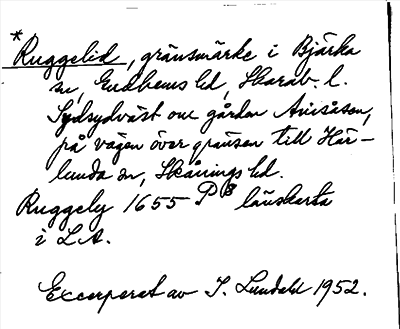 *Ruggelid, gränsmärke i Bjärka
sn, Gudhems hd, Skarab. l.
Sydsydväst om gården Anisåsen,
på vägen över gränsen till Här-
lunda sn, Skånings hd.
Ruggely 1655 P8 länskarta
i L.A.
Excerperat av I. Lundahl 1952.